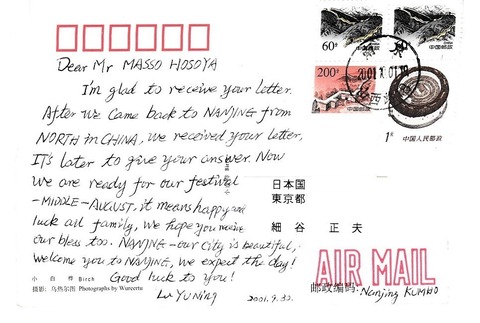 Dear Mr MASSO HOSOYA
I'm glad to receive your letter.
After we came back to NANJING from
NORTH in CHINA, we received your letter,
IT's later to give your answer. Now
we are ready for our festival
-MIDDLE-AUGUST, it means happy and
luck all family, We hope you receive
our bless too. NANJING - our city is beautiful,
welcome you to NANJING, we expect the day!
Good luck to you!
Lu YUNING
2001.9.30.
小白桦 Birch
摄影: 乌热尔图 Photographs by Wureertu
60分
中国邮政
中国邮政
200分
中国邮政
1元 中国人民邮政
2001
日本国
東京都
細谷 正夫
AIR MAIL
邮政编码:
Nanjing